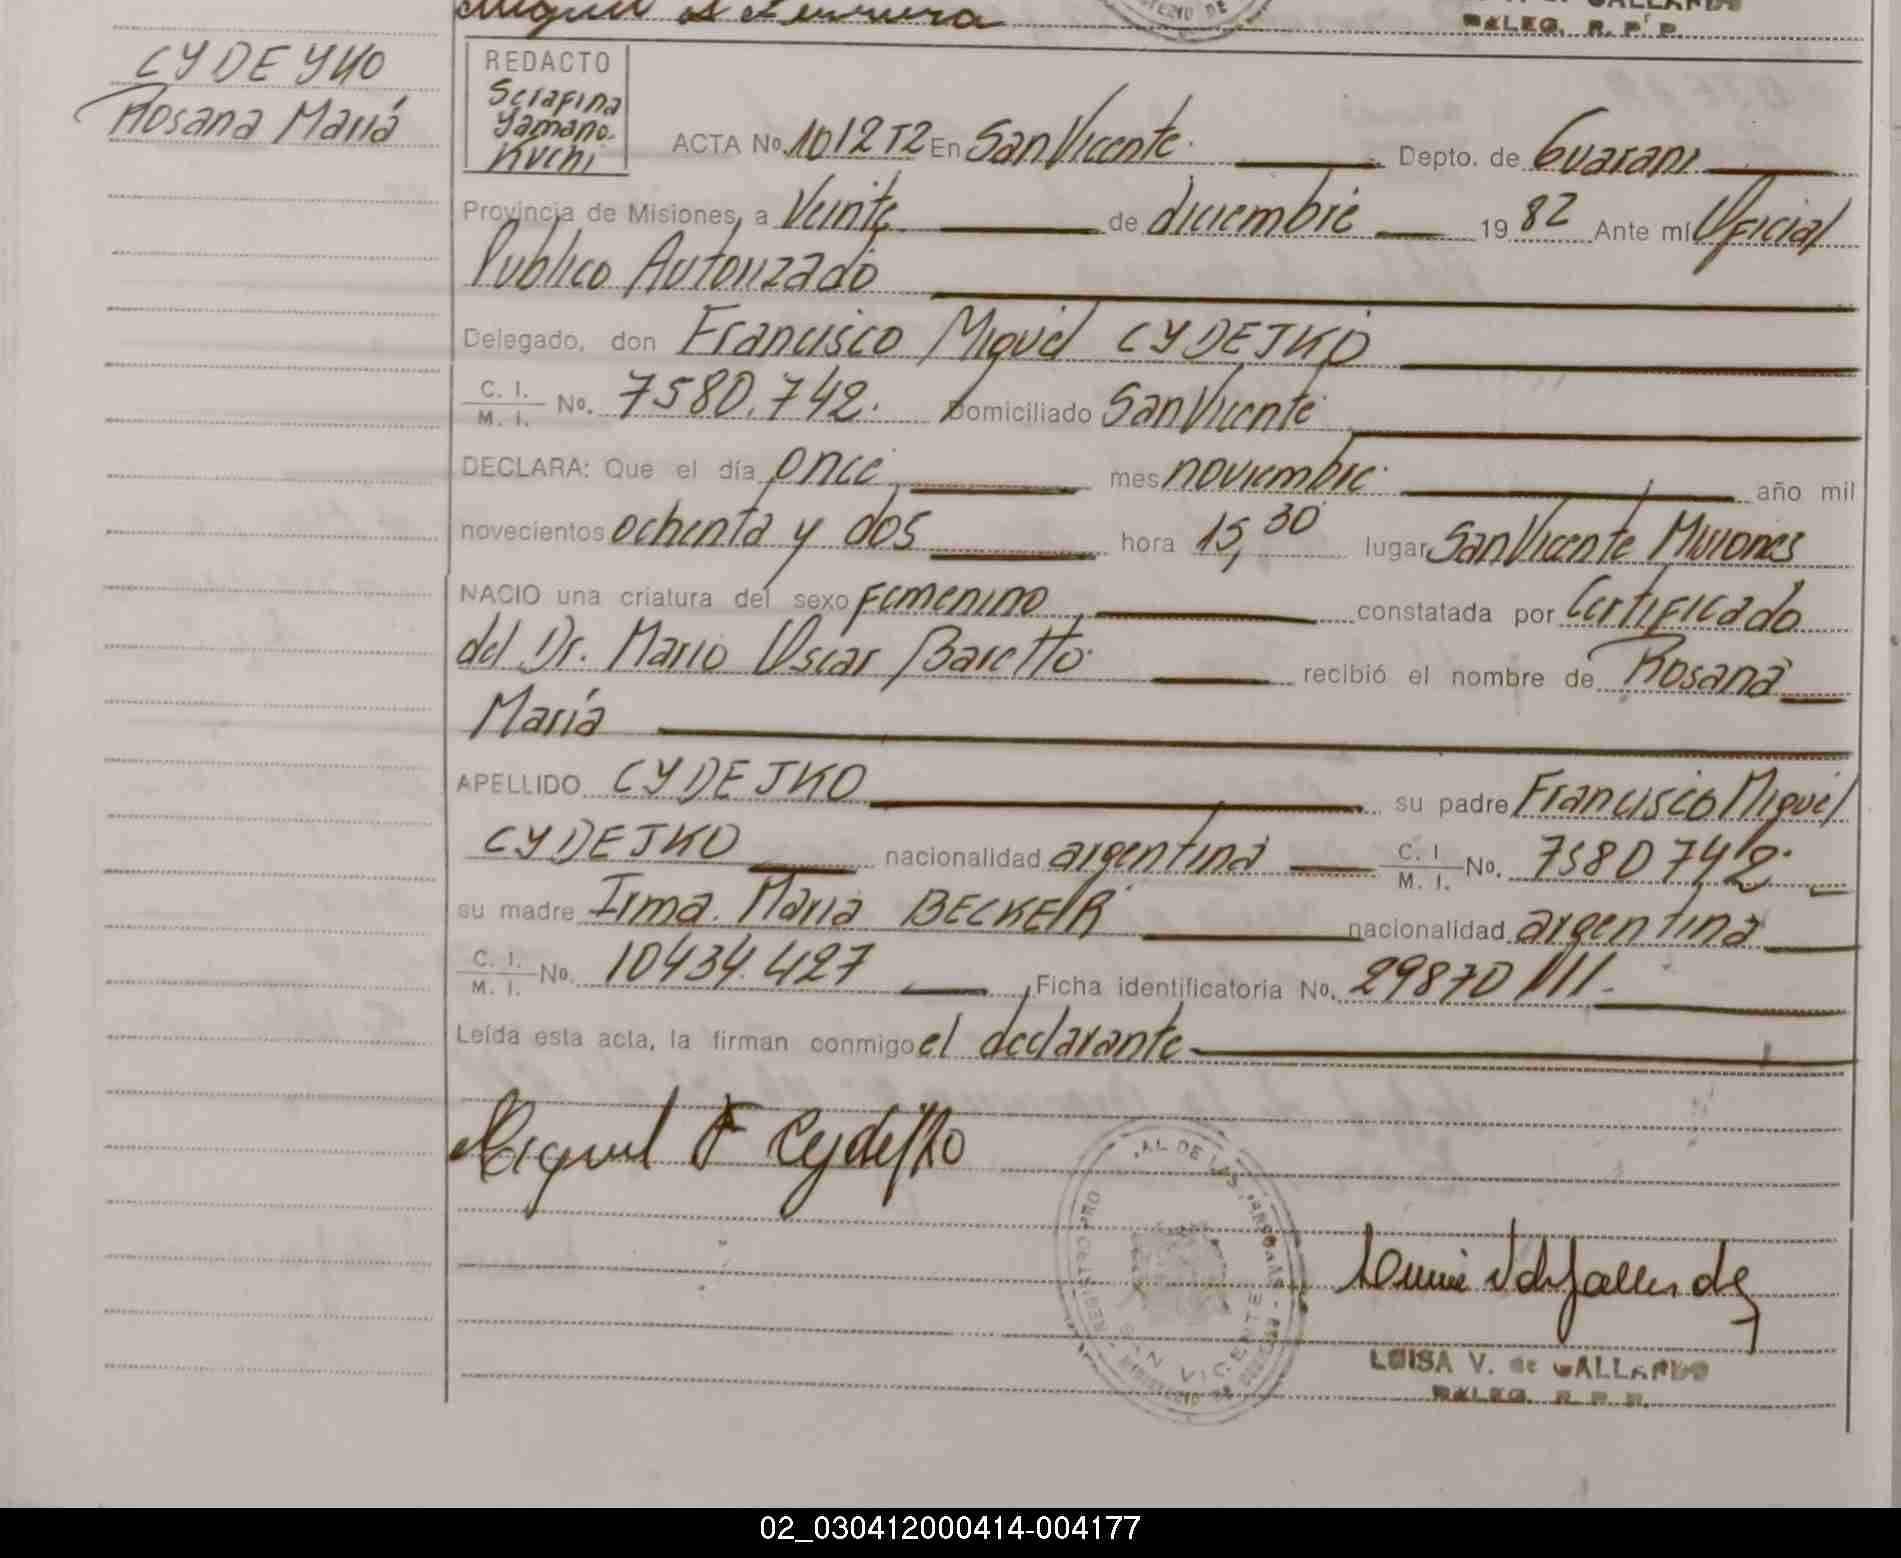 Miguel A Ferreira
MISTERIO DE
GALLARDO
DELEG. R. P. P.
CYDEYKO
Rosana María
REDACTO
Serafina
Yamano.
Kuchi
ACTA No. 1012 T2 En San Vicente. Depto. de Guarani
Provincia de Misiones, a Veinte de diciembre 19 82 Ante mí Oficial
Publico Autorizado
Delegado, don Francisco Miguel CYDEJKO
C. I. / M. I. No. 7580.742. Domiciliado San Vicente
DECLARA: Que el día once mes noviembre año mil
novecientos ochenta y dos hora 15,30 lugar San Vicente Misiones
NACIO una criatura del sexo femenino constatada por Certificado
del Dr. Mario Oscar Baretto recibió el nombre de Rosana
María
APELLIDO CYDEJKO su padre Francisco Miguel
CYDEJKO nacionalidad argentina C. I. / M. I. No. 7580742
su madre Irma. Maria BECKER nacionalidad argentina
C. I. / M. I. No. 10434.427 Ficha identificatoria No. 29870 III.
Leída esta acta, la firman conmigo el declarante
Miguel F Cydejko
REGISTRO PRO AL DE LAS PERSONAS
SAN VICENTE
MINISTERIO DE
LUISA V. de GALLARDO
DELEG. R. P. P.
02_030412000414-004177